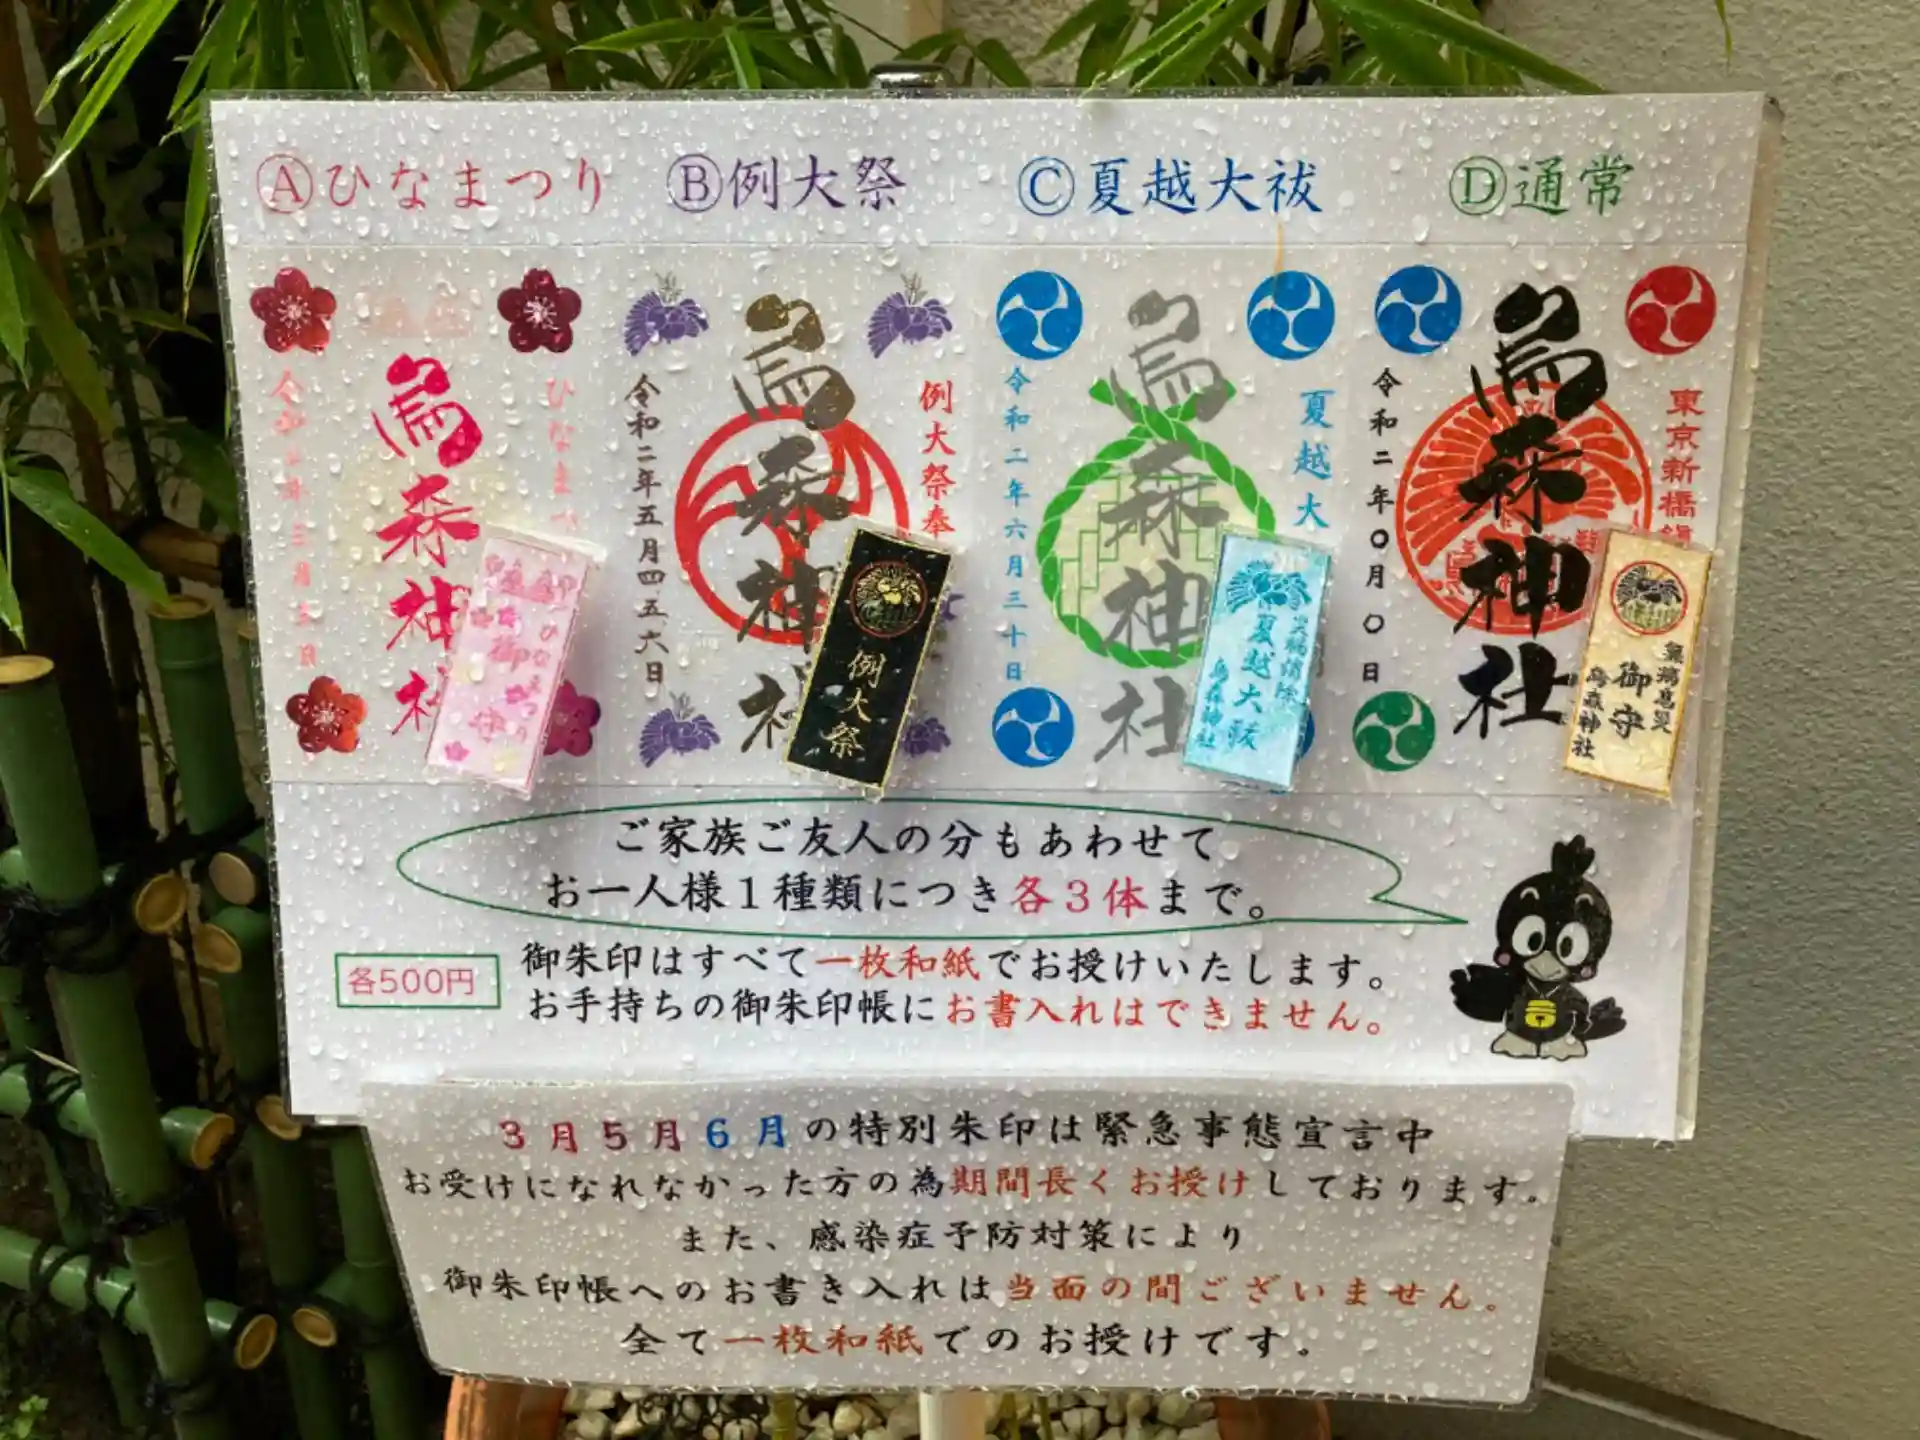 Ⓐひなまつり Ⓑ例大祭 Ⓒ夏越大祓 Ⓓ通常
烏森神社
ひなま
令和二年五月四五六日
烏森神社
例大祭奉
令和二年六月三十日
烏森神社
夏越大
令和二年〇月〇日
烏森神社
東京新橋鎮
例大祭
夏越大祓
烏森神社
御守
烏森神社
ご家族ご友人の分もあわせて
お一人様1種類につき各3体まで。
各500円
御朱印はすべて一枚和紙でお授けいたします。
お手持ちの御朱印帳にお書入れはできません。
3月5月6月の特別朱印は緊急事態宣言中
お受けになれなかった方の為期間長くお授けしております。
また、感染症予防対策により
御朱印帳へのお書き入れは当面の間ございません。
全て一枚和紙でのお授けです。